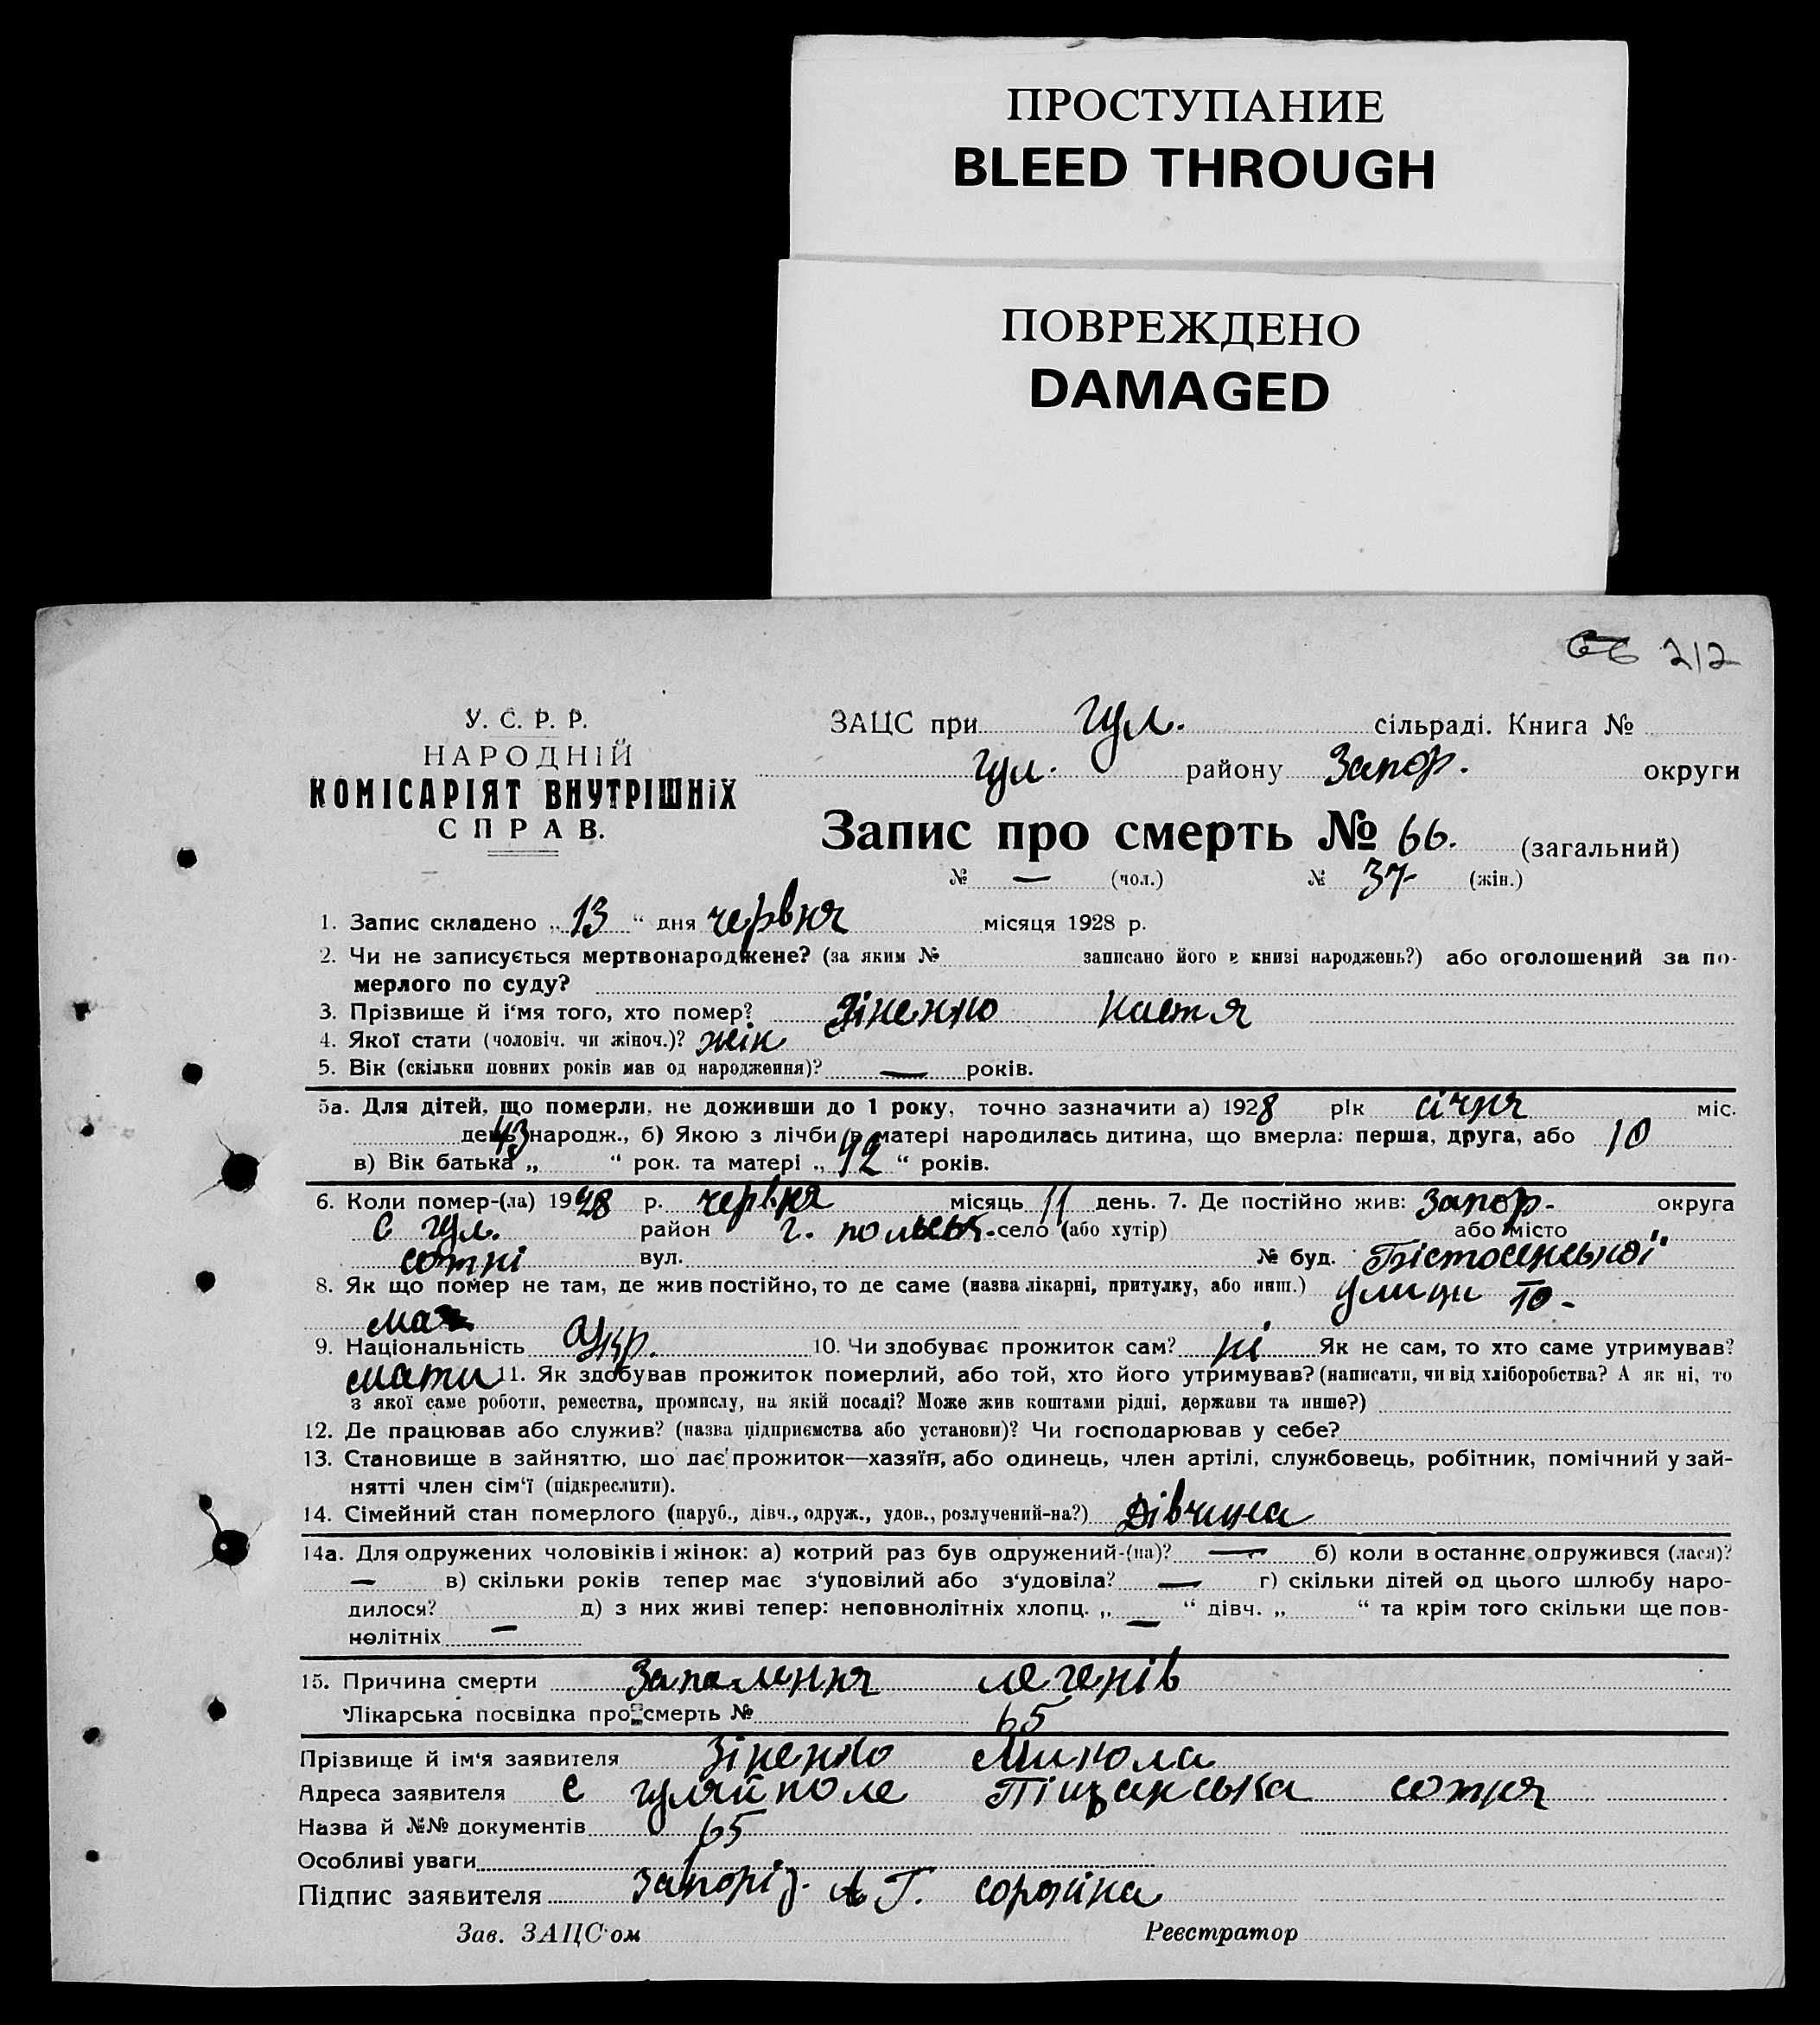 ПРОСТУПАНИЕ
BLEED THROUGH
ПОВРЕЖДЕНО
DAMAGED
66 212
У. С. Р. Р.
НАРОДНІЙ
КОМІСАРІЯТ ВНУТРІШНіХ
СПРАВ.
ЗАЦС при Гул. сільраді. Книга №
Гул. району Запор. округи
Запис про смерть № 66. (загальний)
№ — (чол.) № 37 (жін.)
1. Запис складено „13“ дня червня місяця 1928 р.
2. Чи не записується мертвонароджене? (за яким № записано його в книзі народжень?) або оголошений за по-
мерлого по суду?
3. Прізвище й і‘мя того, хто помер? Зіненко Настя
4. Якої стати (чоловіч. чи жіноч.)? жін
5. Вік (скільки повних років мав од народження)? — років.
5а. Для дітей, що померли, не доживши до 1 року, точно зазначити а) 1928 рік січня міс.
день 13 народж., б) Якою з лічби в матері народилась дитина, що вмерла: перша, друга, або 10
в) Вік батька „ “ рок. та матері „42“ років.
6. Коли помер-(ла) 1928 р. червня місяць 11 день. 7. Де постійно жив: Запор. округа
с Гул. район г. польськ. село (або хутір) або місто
сотні вул. № буд.
8. Як що помер не там, де жив постійно, то де саме (назва лікарні, притулку, або инш.) улици
9. Національність Укр. 10. Чи здобуває прожиток сам? ні Як не сам, то хто саме утримував?
мати 11. Як здобував прожиток померлий, або той, хто його утримував? (написати, чи від хліборобства? А як ні, то
з якої саме роботи, ремества, промислу, на якій посаді? Може жив коштами рідні, держави та инше?)
12. Де працював або служив? (назва підприємства або установи)? Чи господарював у себе?
13. Становище в зайняттю, що дає прожиток—хазяїн, або одинець, член артілі, службовець, робітник, помічний у зай-
нятті член сім‘ї (підкреслити).
14. Сімейний стан померлого (паруб., дівч., одруж., удов., розлучений-на?) Дівчина
14а. Для одружених чоловіків і жінок: а) котрий раз був одружений-(на)? — б) коли в останнє одружився (лася)?
— в) скільки років тепер має з‘удовілий або з‘удовіла? — г) скільки дітей од цього шлюбу наро-
дилося? д) з них живі тепер: неповнолітніх хлопц. „ — “ дівч. „ “ та крім того скільки ще пов-
нолітніх —
15. Причина смерти Запалення легенів
Лікарська посвідка про смерть № 65
Прізвище й ім‘я заявителя Зіненко Микола
Адреса заявителя с Гуляйполе Піщанська сотня
Назва й №№ документів 65
Особливі уваги
Підпис заявителя
Зав. ЗАЦС‘ом Реєстратор